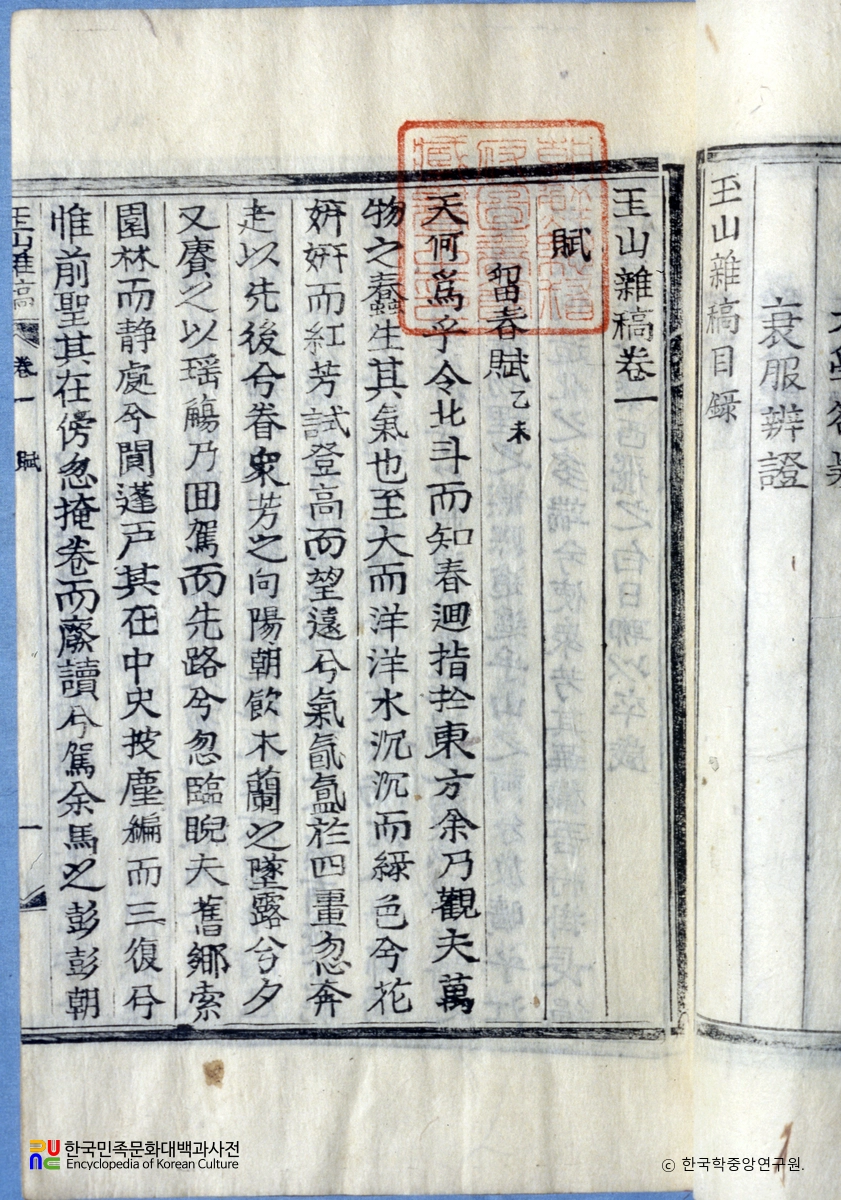 衰服辨證
玉山雜稿目錄
玉山雜稿卷一
賦
留春賦 乙未
天何爲乎令北斗而知春迴指於東方余乃觀夫萬
物之蠢生其氣也至大而洋洋水沉沉而綠色兮花
姸姸而紅芳試登高而望遠兮氣氤氳於四畺忽奔
走以先後兮眷衆芳之向陽朝飮木蘭之墜露兮夕
又賡之以瑶觴乃回駕而先路兮忽臨睨夫舊鄉索
園林而静處兮閴蓬戶其在中史披塵編而三復兮
惟前聖其在傍忽掩卷而廢讀兮駕余馬之彭彭朝
玉山雜稿 卷一 賦 一
한국민족문화대백과사전
Encyclopedia of Korean Culture
ⓒ 한국학중앙연구원.